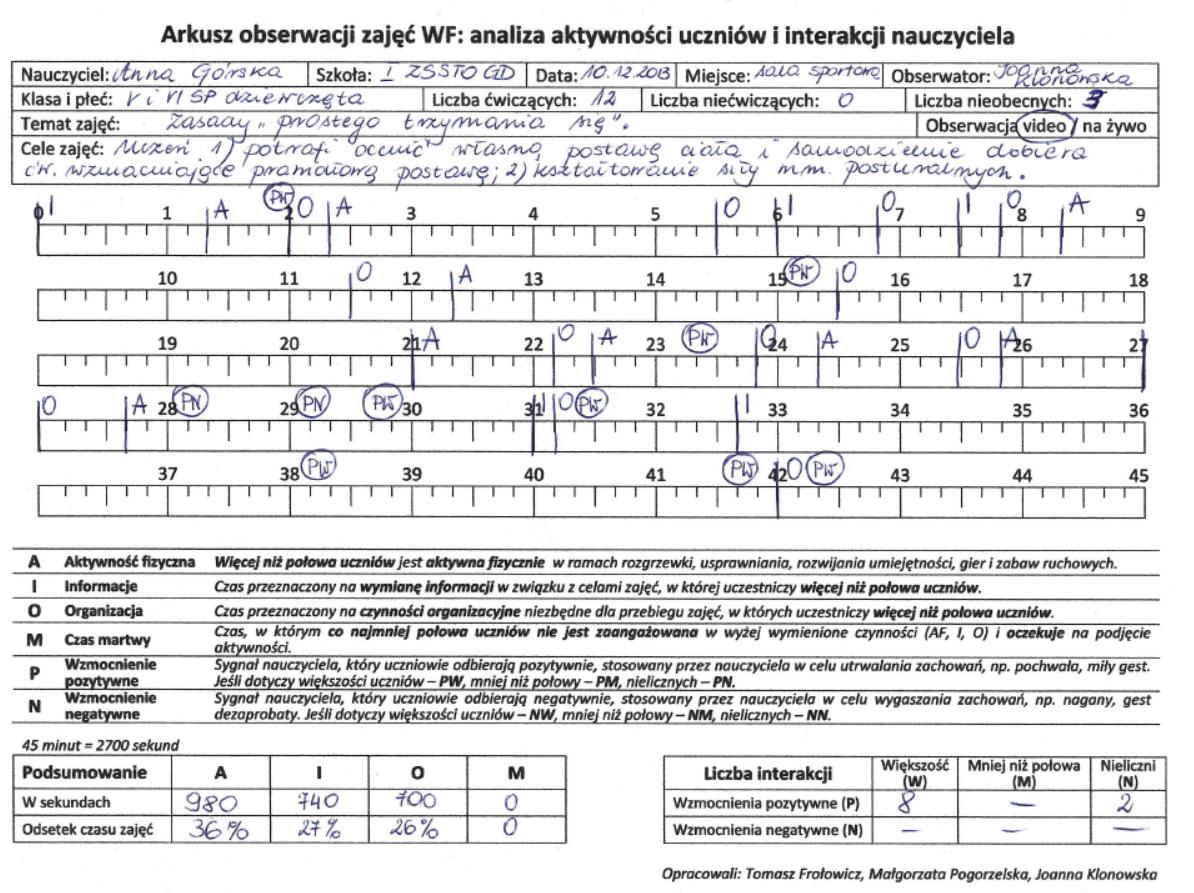 Arkusz obserwacji zajęć WF: analiza aktywności uczniów i interakcji nauczyciela
Nauczyciel: Anna Górska Szkoła: I ZSSTO GD Data: 10.12.2013 Miejsce: sala sportowa Obserwator: Joanna Klonowska
Klasa i płeć: V i VI SP dziewczęta Liczba ćwiczących: 12 Liczba niećwiczących: 0 Liczba nieobecnych: 3
Temat zajęć: Zasady „prostego trzymania się".
Obserwacja video / na żywo
Cele zajęć: Uczeń 1) potrafi ocenić własną postawę ciała i samodzielnie dobiera
ćw. wzmacniające prawidłową postawę; 2) kształtowanie siły mm. posturalnych.
0 I 1 A PW 2 O A 3 4 5 O 6 I O 7 I O 8 A 9
10 11 O 12 A 13 14 15 PW O 16 17 18
19 20 21 A 22 O A 23 PW O 24 A 25 O A 26 27
O A 28 PN 29 PN PW 30 31 I O PW 32 I 33 34 35 36
37 38 PW 39 40 41 PW 42 O PW 43 44 45
A Aktywność fizyczna Więcej niż połowa uczniów jest aktywna fizycznie w ramach rozgrzewki, usprawniania, rozwijania umiejętności, gier i zabaw ruchowych.
I Informacje Czas przeznaczony na wymianę informacji w związku z celami zajęć, w której uczestniczy więcej niż połowa uczniów.
O Organizacja Czas przeznaczony na czynności organizacyjne niezbędne dla przebiegu zajęć, w których uczestniczy więcej niż połowa uczniów.
M Czas martwy Czas, w którym co najmniej połowa uczniów nie jest zaangażowana w wyżej wymienione czynności (AF, I, O) i oczekuje na podjęcie
aktywności.
P Wzmocnienie pozytywne Sygnał nauczyciela, który uczniowie odbierają pozytywnie, stosowany przez nauczyciela w celu utrwalania zachowań, np. pochwała, miły gest.
Jeśli dotyczy większości uczniów – PW, mniej niż połowy – PM, nielicznych – PN.
N Wzmocnienie negatywne Sygnał nauczyciela, który uczniowie odbierają negatywnie, stosowany przez nauczyciela w celu wygaszania zachowań, np. nagany, gest
dezaprobaty. Jeśli dotyczy większości uczniów – NW, mniej niż połowy – NM, nielicznych – NN.
45 minut = 2700 sekund
Podsumowanie A I O M
W sekundach 980 740 700 0
Odsetek czasu zajęć 36% 27% 26% 0
Liczba interakcji Większość (W) Mniej niż połowa (M) Nieliczni (N)
Wzmocnienia pozytywne (P) 8 — 2
Wzmocnienia negatywne (N) — — —
Opracowali: Tomasz Frołowicz, Małgorzata Pogorzelska, Joanna Klonowska